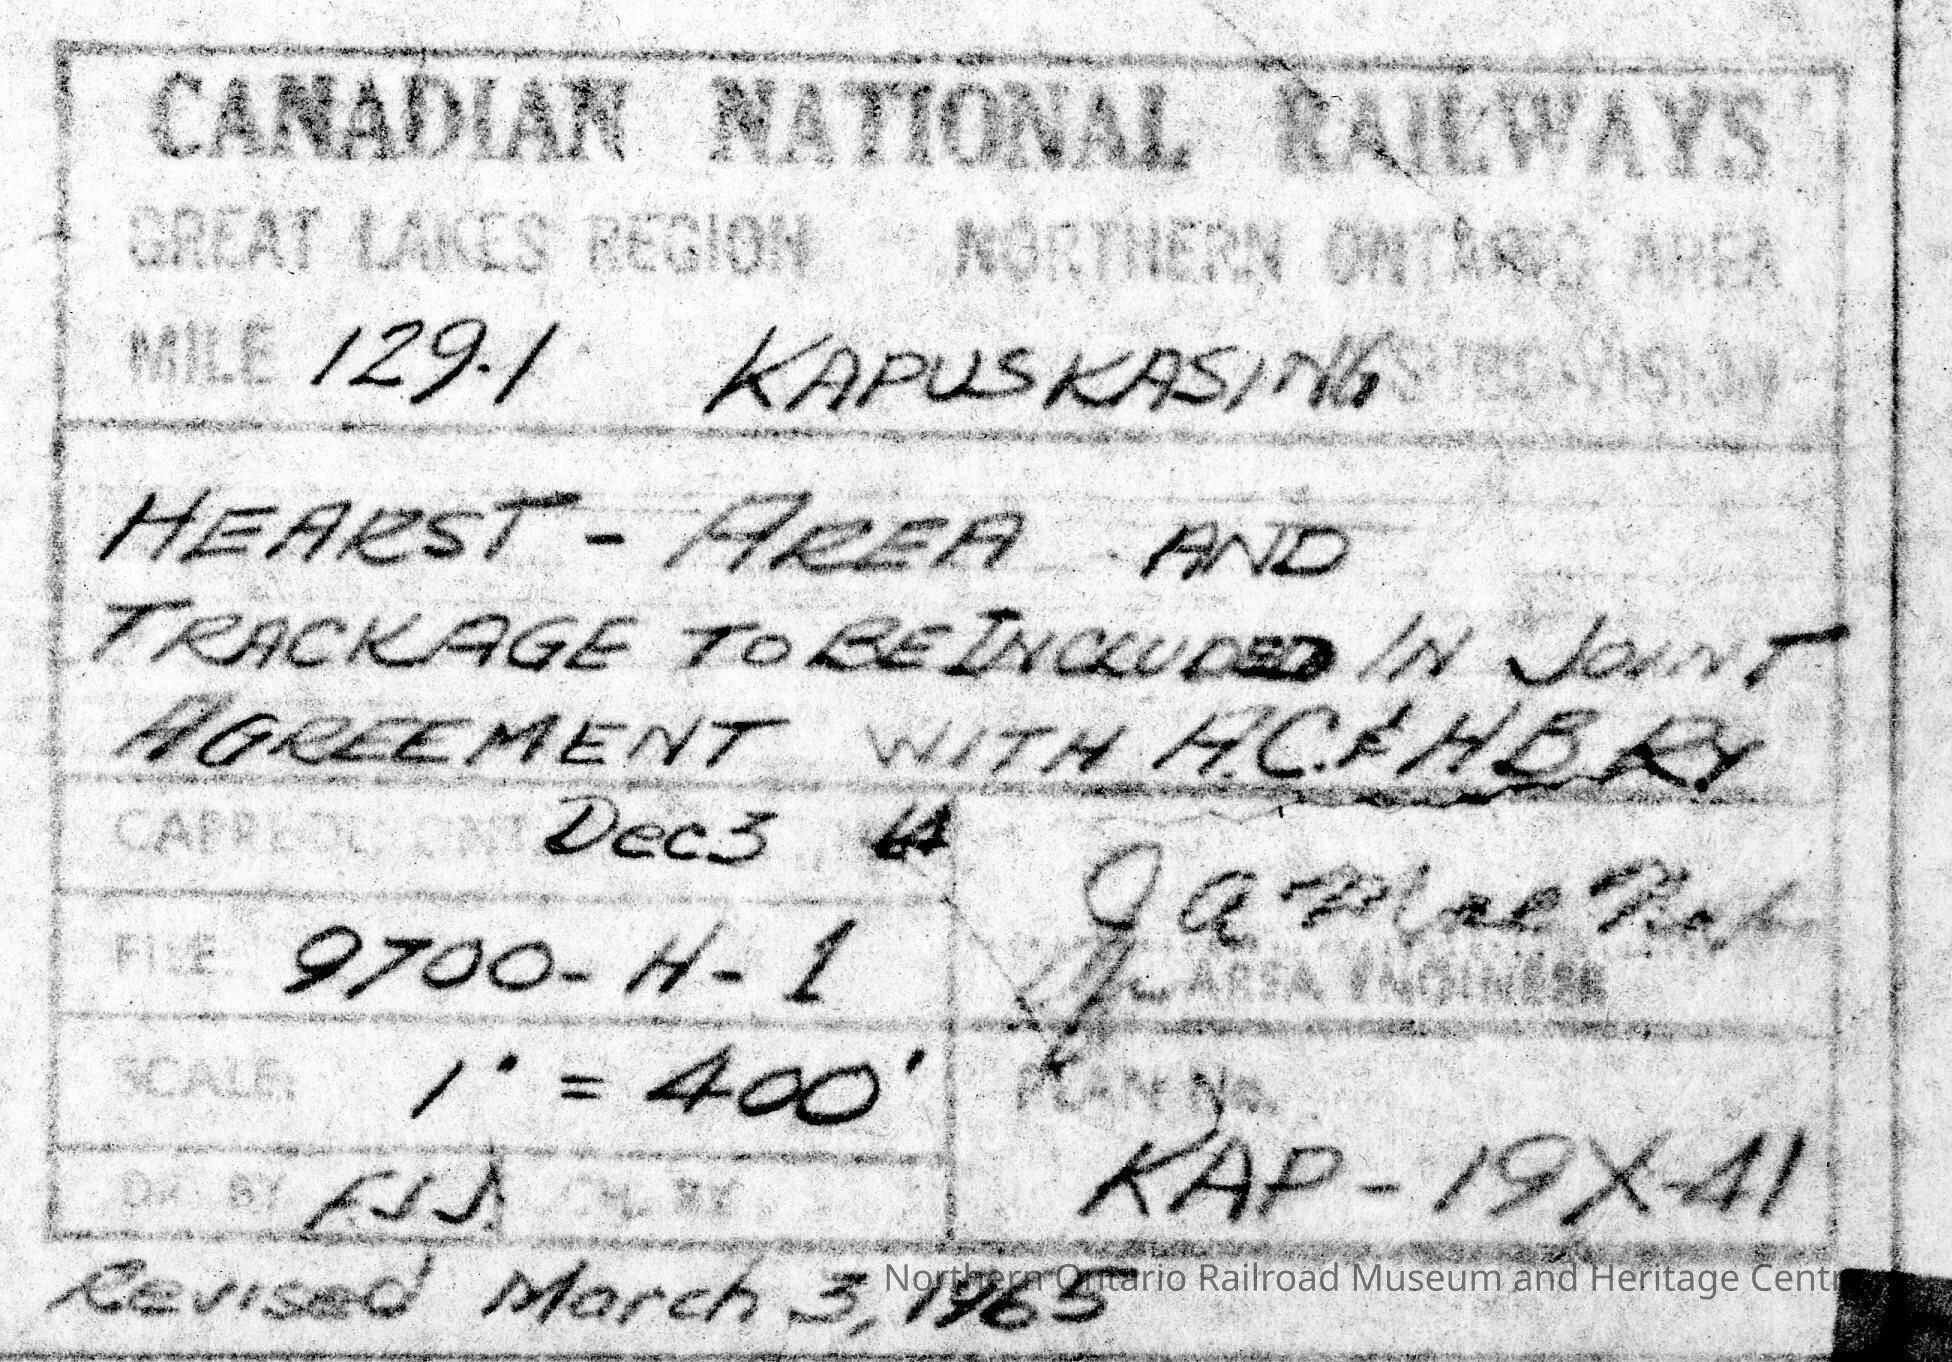 CANADIAN NATIONAL RAILWAYS
GREAT LAKES REGION NORTHERN ONTARIO AREA
MILE 129.1 KAPUSKASING SUBDIVISION
HEARST - AREA AND
TRACKAGE TO BE INCLUDED IN JOINT
AGREEMENT WITH A.C.& H.B. RY
CAPREOL ONT. Dec 3 64
FILE. 9700-H-1
J A
AREA ENGINEER
SCALE. 1" = 400'
PLAN No.
KAP-19X-41
DR. BY F.J.J. CH. BY
Revised March 3, 1965
Northern Ontario Railroad Museum and Heritage Centr